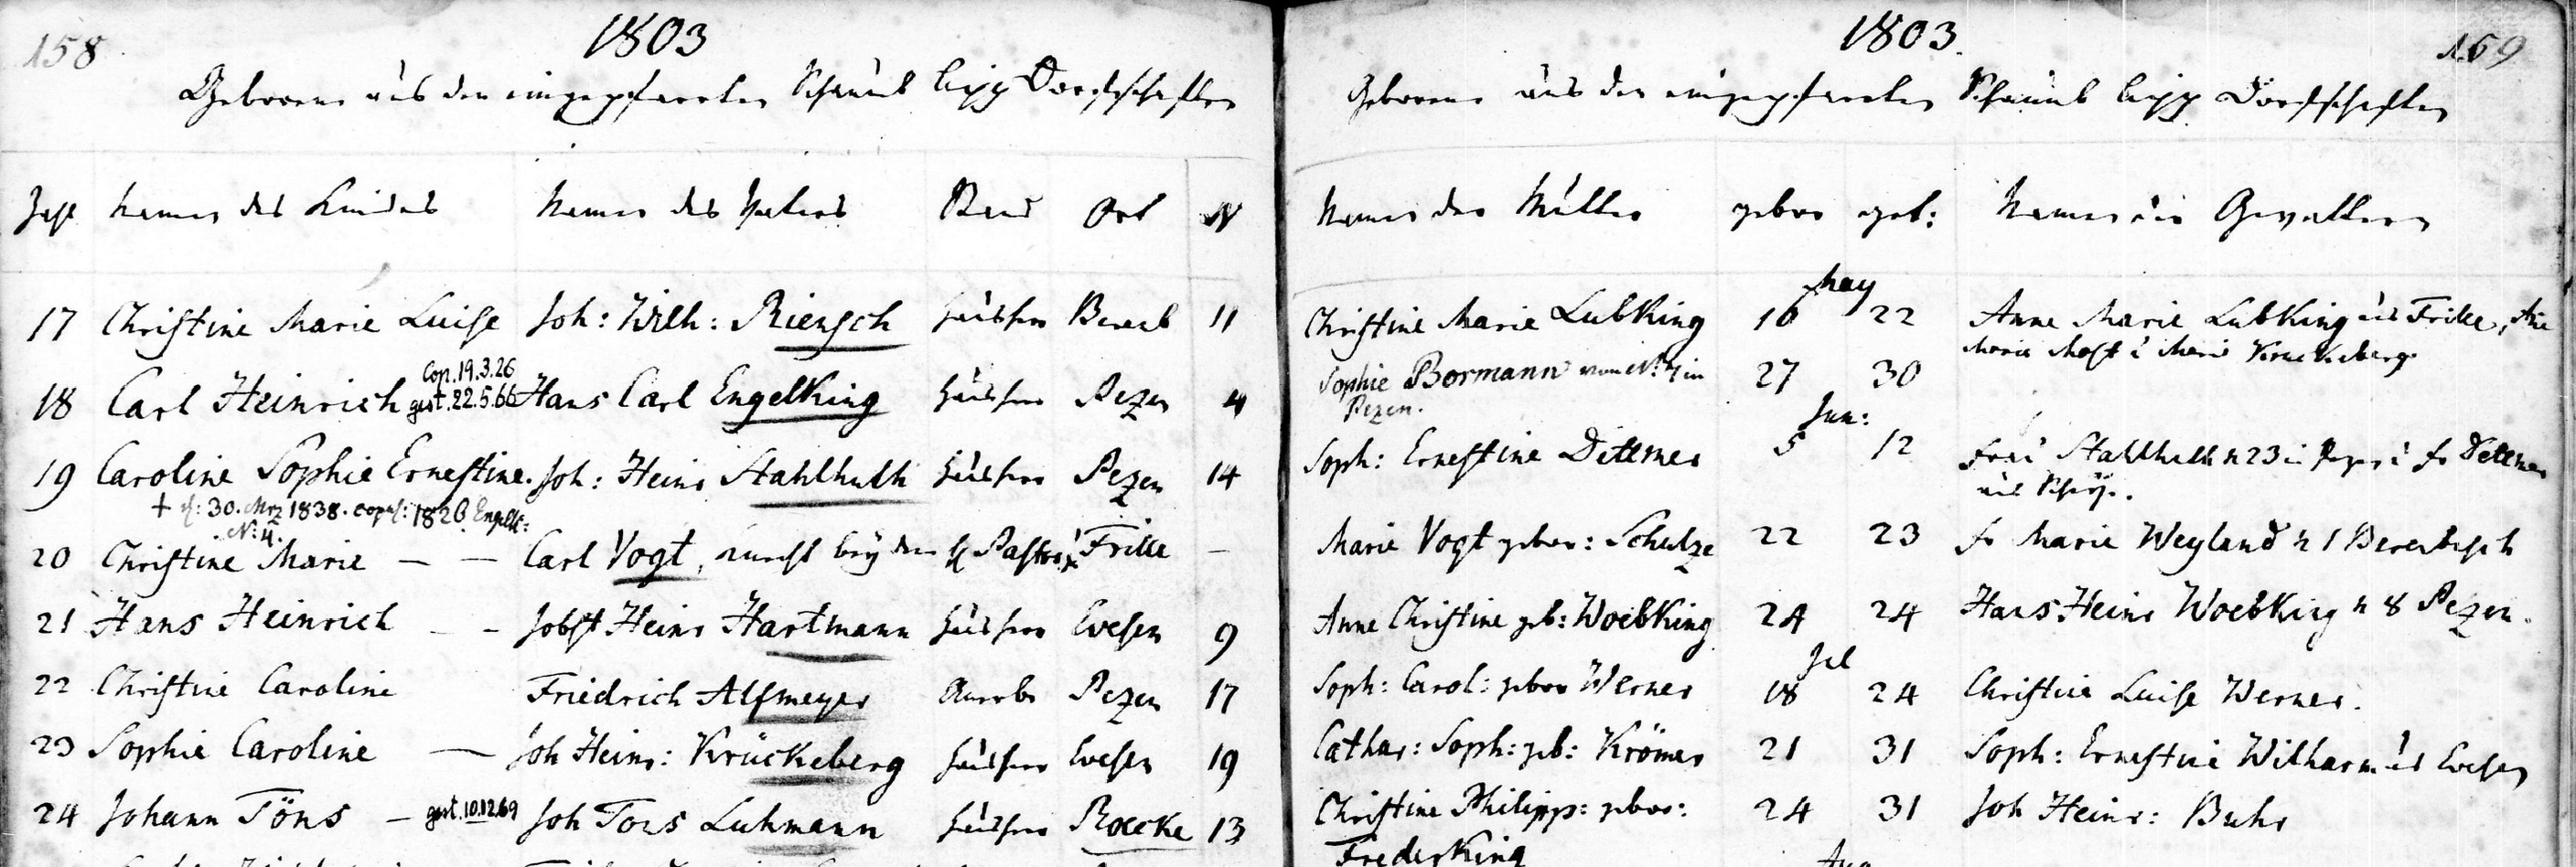 158
1803
Geborene aus den eingepfarrten Schaumb Lipp Dorfschaften
Zahl Namen des Kindes Namen des Vaters Stand Ort N
17 Christine Marie Luise Joh: Wilh: Riensch Hausherr Berenb 11
Cop. 19.3.26
18 Carl Heinrich gest. 22.5.66 Hans Carl Engelking Hausherr Pezen 4
19 Caroline Sophie Ernestine. Joh: Heinr Stahlhuth Hausherr Pezen 14
+ d: 30. Mrz 1838. copul: 1826 Engelk:
N: 4.
20 Christine Marie — — Carl Vogt, bey dem H Pastor Frille —
21 Hans Heinrich — — Jobst Heinr Hartmann Hausherr Evesen 9
22 Christine Caroline Friedrich Alfmeyer Pezen 17
23 Sophie Caroline — Joh Heinr: Krückeberg Hausherr Evesen 19
24 Johann Töns — gest. 10.12.69 Joh Tons Luhmann Hausherr Roecke 13
1803.
159
Geborene aus den eingepfarrten Schaumb Lipp Dorfschaften
Namen der Mutter gebor get: Namen der Gevattern
May
Christine Marie Lubking 16 22 Anne Marie Lubking aus Frille, Ane
Marie Most u Marie Kruckeberg
Sophie Bormann von N: 4 in 27 30
Pezen.
Jun:
Soph: Ernestine Dittmer 5 12 Frau Stahlhuth n 23 in Pezen u Fr Dettmer
aus
Marie Vogt gebor: Schulze 22 23 Fr Marie Weyland n 1 Berenbusch
Anne Christine geb: Woebking 24 24 Hans Heinr Woebking n 8 Pezen.
Jul
Soph: Carol: gebor Werner 18 24 Christine Luise Werner.
Cathar: Soph: geb: Krömer 21 31 Soph: Ernestine Wilharm aus Evesen
Christine Philipp: gebor: 24 31 Joh Heinr: Buhr
Frederking
Aug